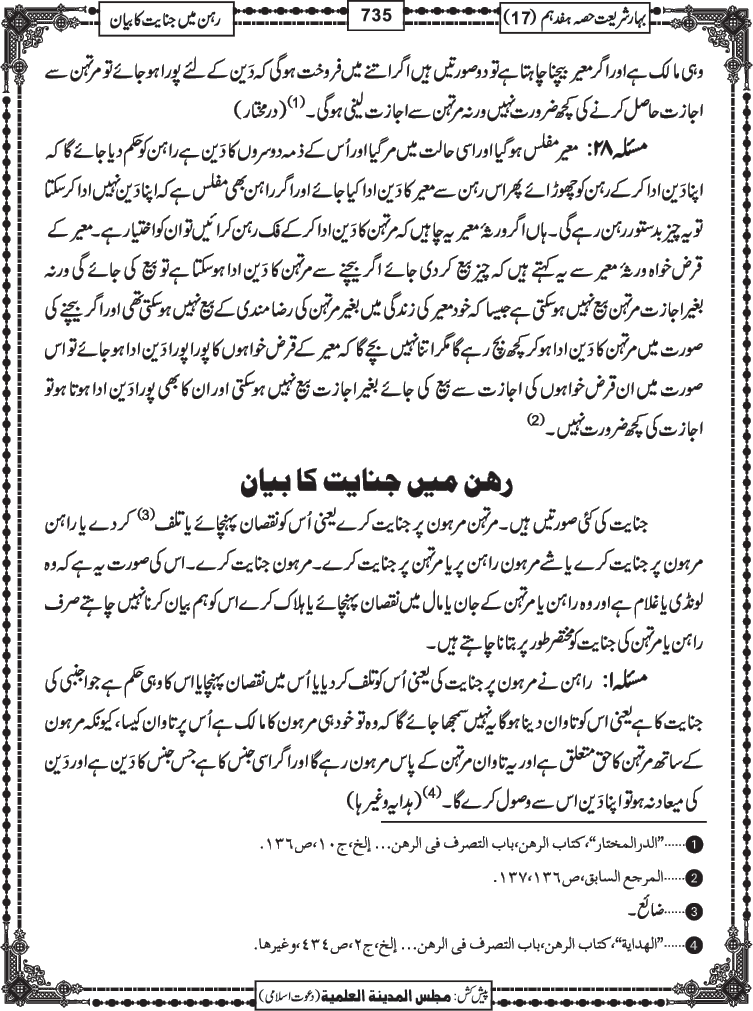 بہارِشریعت حصہ ہفدہم (17)
735
رہن میں جنایت کا بیان
وہی مالک ہے اور اگر معیر بیچنا چاہتا ہے تو دو صورتیں ہیں اگر اتنے میں فروخت ہوگی کہ دَین کے لئے پورا ہو جائے تو مرتہن سے
اجازت حاصل کرنے کی کچھ ضرورت نہیں ورنہ مرتہن سے اجازت لینی ہوگی۔(1) (درمختار)
مسئلہ ۲۸: معیر مفلس ہوگیا اور اسی حالت میں مرگیا اور اُس کے ذمہ دوسروں کا دَین ہے راہن کو حکم دیا جائے گا کہ
اپنا دَین ادا کر کے رہن کو چھوڑائے پھر اس رہن سے معیر کا دَین ادا کیا جائے اور اگر راہن بھی مفلس ہے کہ اپنا دَین نہیں ادا کرسکتا
تو یہ چیز بدستور رہن رہے گی۔ ہاں اگر ورثۂ معیر یہ چاہیں کہ مرتہن کا دَین ادا کر کے فک رہن کرائیں تو ان کو اختیار ہے۔ معیر کے
قرض خواہ ورثۂ معیر سے یہ کہتے ہیں کہ چیز بیع کر دی جائے اگر بیچنے سے مرتہن کا دَین ادا ہوسکتا ہے تو بیع کی جائے گی ورنہ
بغیر اجازت مرتہن بیع نہیں ہوسکتی ہے جیسا کہ خود معیر کی زندگی میں بغیر مرتہن کی رضا مندی کے بیع نہیں ہوسکتی تھی اور اگر بیچنے کی
صورت میں مرتہن کا دَین ادا ہوکر کچھ بچ رہے گا مگر اتنا نہیں بچے گا کہ معیر کے قرض خواہوں کا پورا پورا دَین ادا ہو جائے تو اس
صورت میں ان قرض خواہوں کی اجازت سے بیع کی جائے بغیر اجازت بیع نہیں ہوسکتی اور ان کا بھی پورا دَین ادا ہوتا ہو تو
اجازت کی کچھ ضرورت نہیں۔(2)
رہن میں جنایت کا بیان
جنایت کی کئی صورتیں ہیں۔ مرتہن مرہون پر جنایت کرے یعنی اُس کو نقصان پہنچائے یا تلف(3) کر دے یا راہن
مرہون پر جنایت کرے یا شے مرہون راہن پر یا مرتہن پر جنایت کرے۔ مرہون جنایت کرے۔ اس کی صورت یہ ہے کہ وہ
لونڈی یا غلام ہے اور وہ راہن یا مرتہن کے جان یا مال میں نقصان پہنچائے یا ہلاک کرے اس کو ہم بیان کرنا نہیں چاہتے صرف
راہن یا مرتہن کی جنایت کو مختصر طور پر بتانا چاہتے ہیں۔
مسئلہ ۱: راہن نے مرہون پر جنایت کی یعنی اُس کو تلف کر دیا یا اُس میں نقصان پہنچایا اس کا وہی حکم ہے جو اجنبی کی
جنایت کا ہے یعنی اس کو تاوان دینا ہوگا یہ نہیں سمجھا جائے گا کہ وہ تو خود ہی مرہون کا مالک ہے اُس پر تاوان کیسا، کیونکہ مرہون
کے ساتھ مرتہن کا حق متعلق ہے اور یہ تاوان مرتہن کے پاس مرہون رہے گا اور اگر اسی جنس کا ہے جس جنس کا دَین ہے اور دَین
کی میعاد نہ ہو تو اپنا دَین اس سے وصول کرے گا۔(4) (ہدایہ وغیرہا)
1 ......"الدرالمختار"،کتاب الرهن،باب التصرف فی الرهن... إلخ،ج۱۰،ص۱۳۶.
2 ......المرجع السابق،ص۱۳۶،۱۳۷.
3 ......ضائع۔
4 ......"الهداية"،کتاب الرهن،باب التصرف فی الرهن... إلخ،ج۲،ص۴۳۴،وغیرها.
پیش کش: مجلس المدینة العلمیة (دعوت اسلامی)